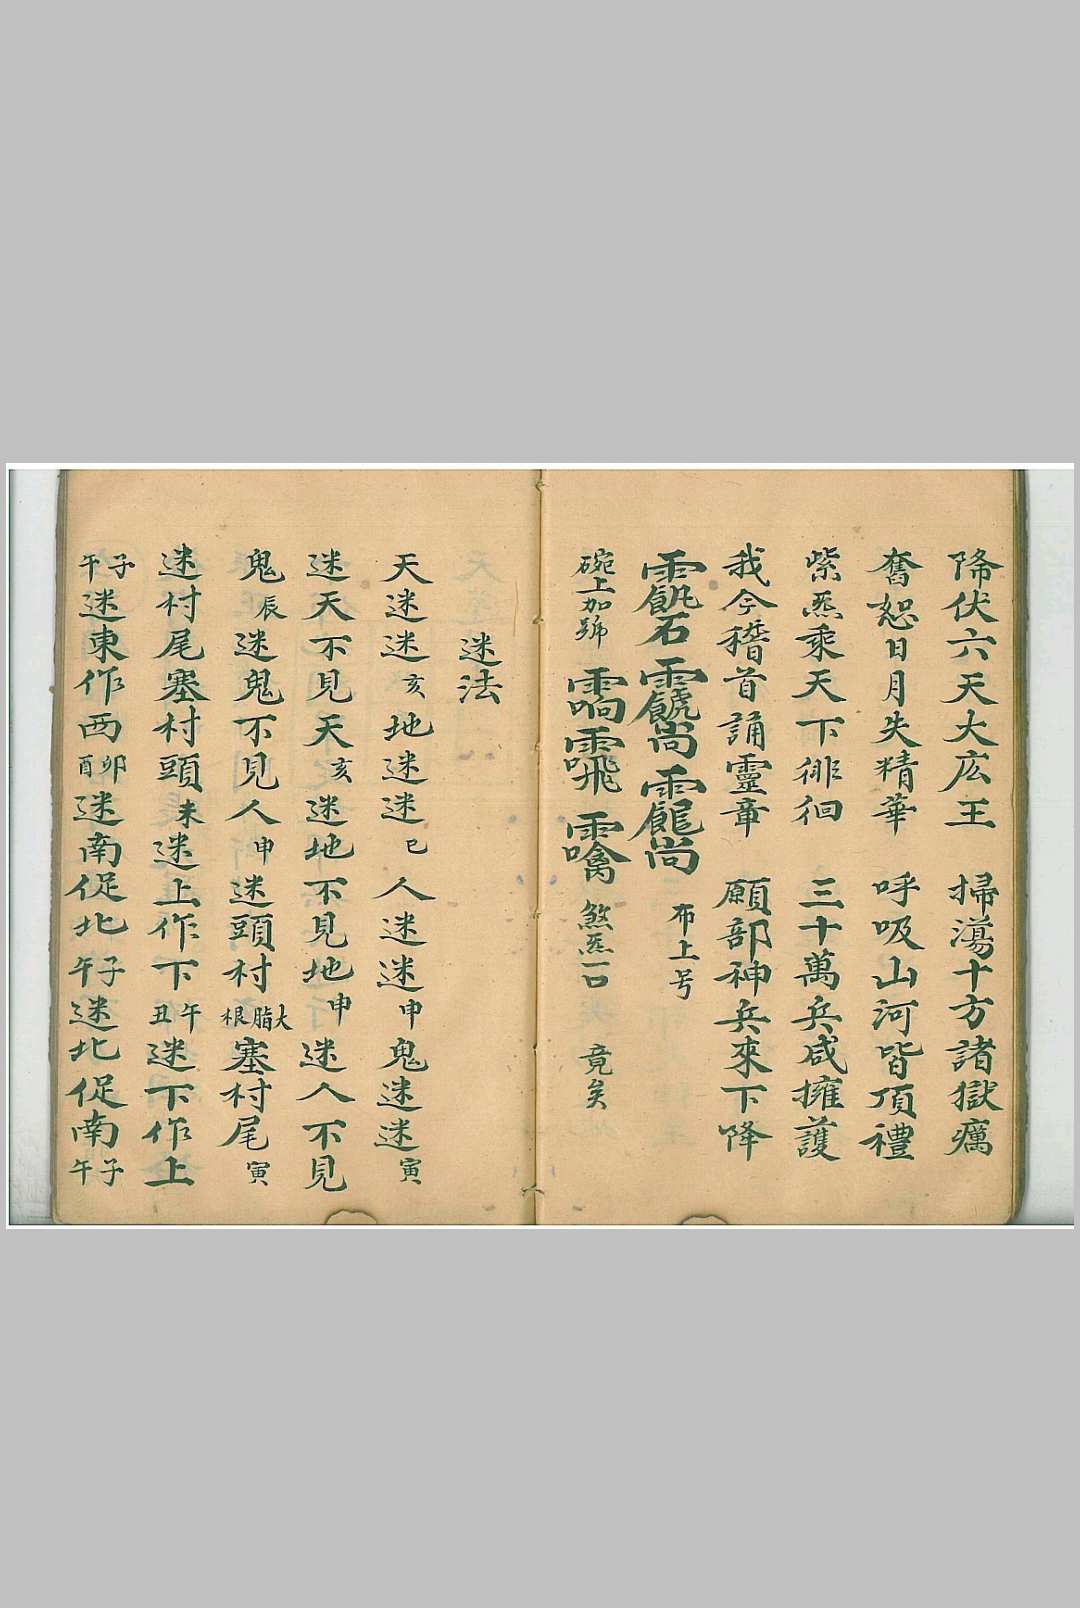 降伏六天大広王　掃蕩十方諸獄癘
奮恕日月失精華　呼吸山河皆頂禮
紫炁乘天下徘徊　三十萬兵咸擁護
我今稽首誦靈章　願部神兵來下降
布上号
碗上加號　煞炁一口　竟矣
迷法
天迷迷亥地迷迷巳人迷迷申鬼迷迷寅
迷天不見天亥迷地不見地申迷人不見
鬼辰迷鬼不見人申迷頭村大脂根塞村尾寅
迷村尾塞村頭未迷上作下午丑迷下作上
子午迷東作西卯酉迷南促北子午迷北促南子午